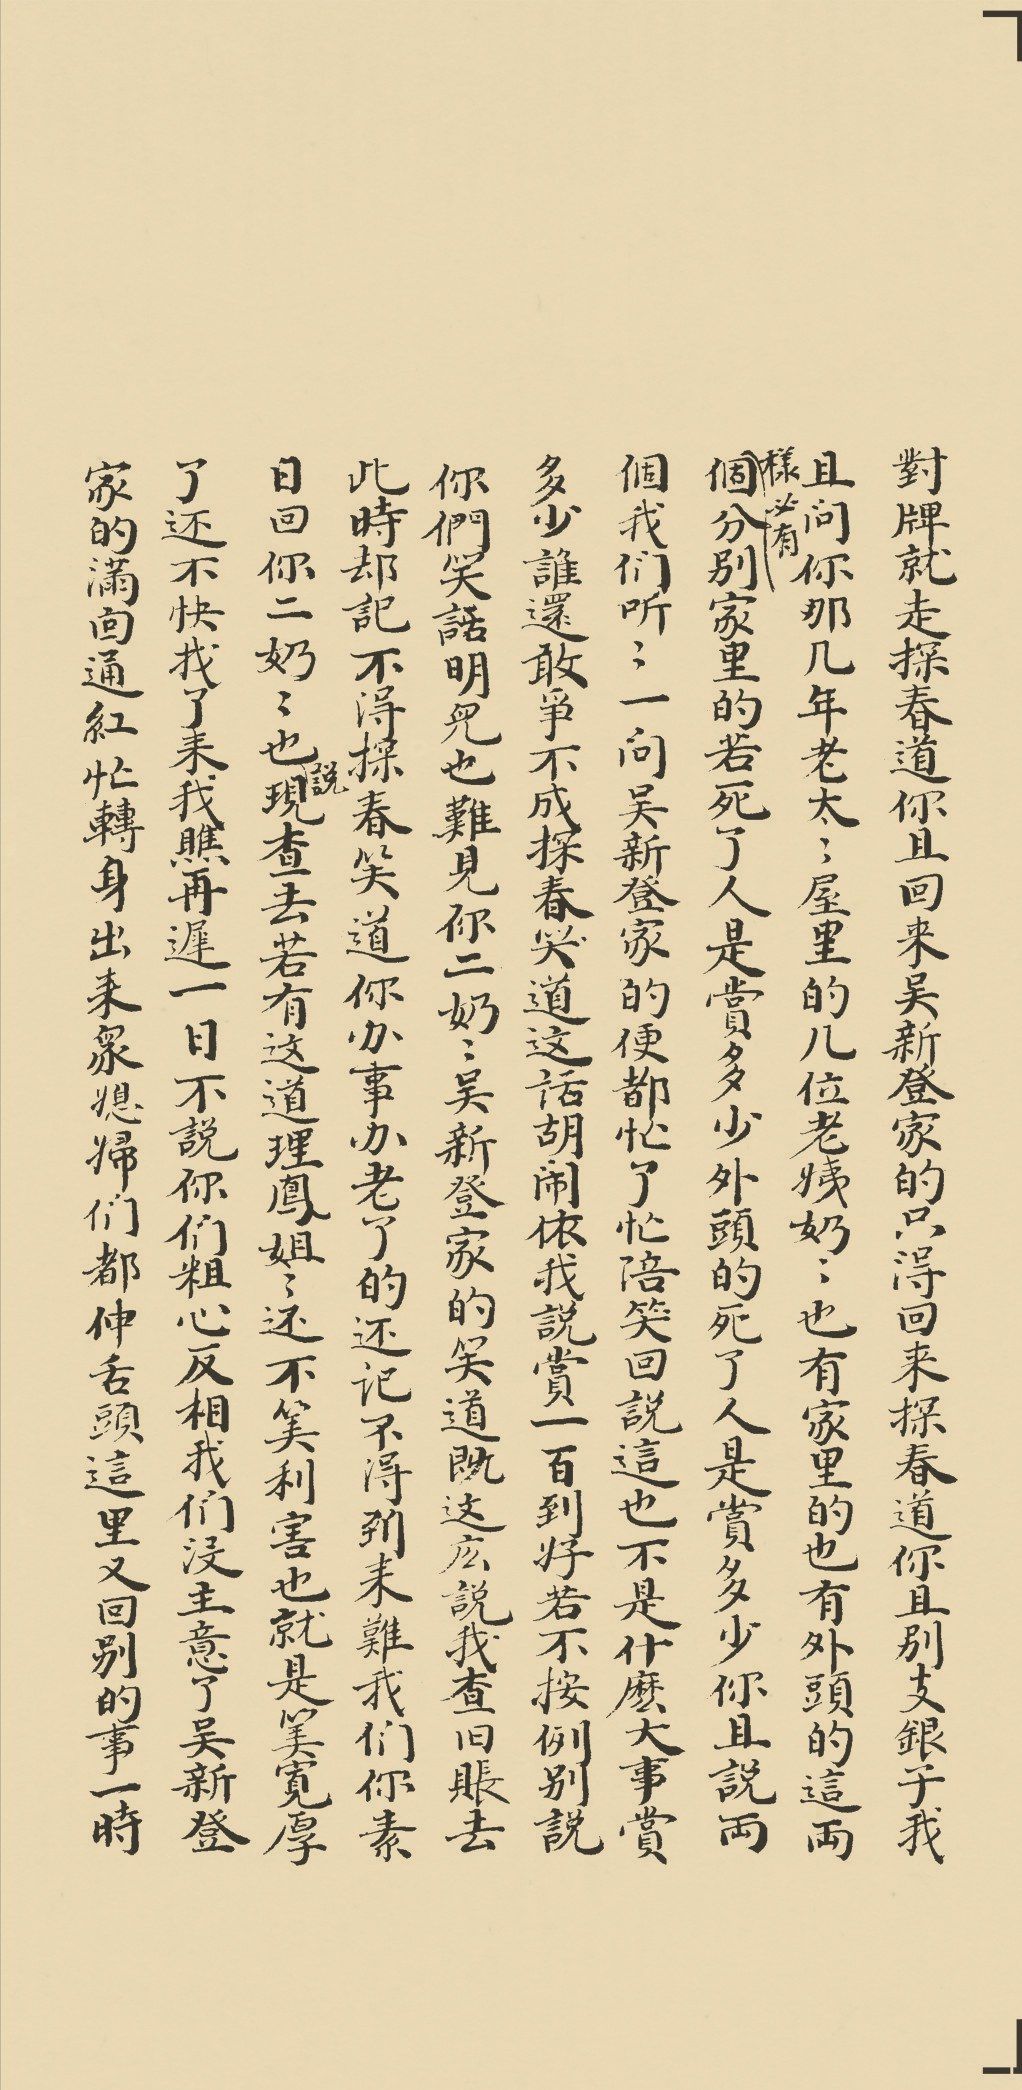 對牌就走探春道你且回来吴新登家的只得回来探春道你且别支銀子我
且问你那几年老太〻屋里的几位老姨奶〻也有家里的也有外頭的這両
樣必有
個分别家里的若死了人是賞多少外頭的死了人是賞多少你且説両
個我们听〻一问吴新登家的便都忙了忙陪笑回説這也不是什麽大事賞
多少誰還敢爭不成探春笑道这话胡闹依我説賞一百到好若不按例别説
你們笑話明兒也難見你二奶〻吴新登家的笑道既这広説我查旧賬去
此時却記不得探春笑道你办事办老了的还记不得到来難我们你素
日回你二奶〻也現查去若有这道理鳳姐〻还不筭利害也就是筭寛厚
説
了还不快找了来我瞧再遲一日不説你们粗心反相我们没主意了吴新登
家的滿面通紅忙轉身出来衆媳婦们都伸舌頭這里又回别的事一時